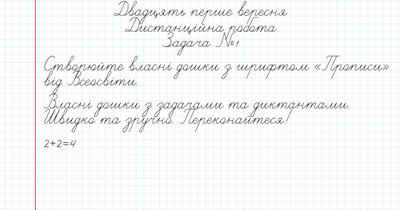 Двадцять перше вересня
Дистанційна робота
Задача №1
Створюйте власні дошки з шрифтом «Прописи»
від Всеосвіти.
Власні дошки з задачами та диктантами.
Швидко та зручно. Переконайтеся!
2+2=4